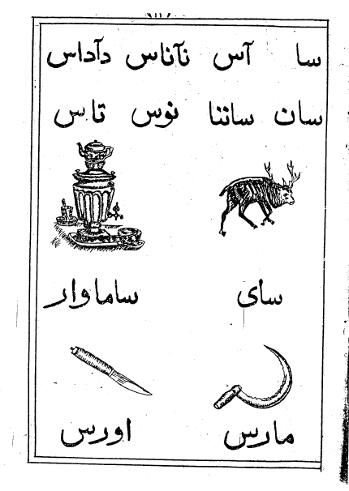 سا آس نآناس دآداس
سان ساننا نوس تاس
سای ساماوار
مارس اورس